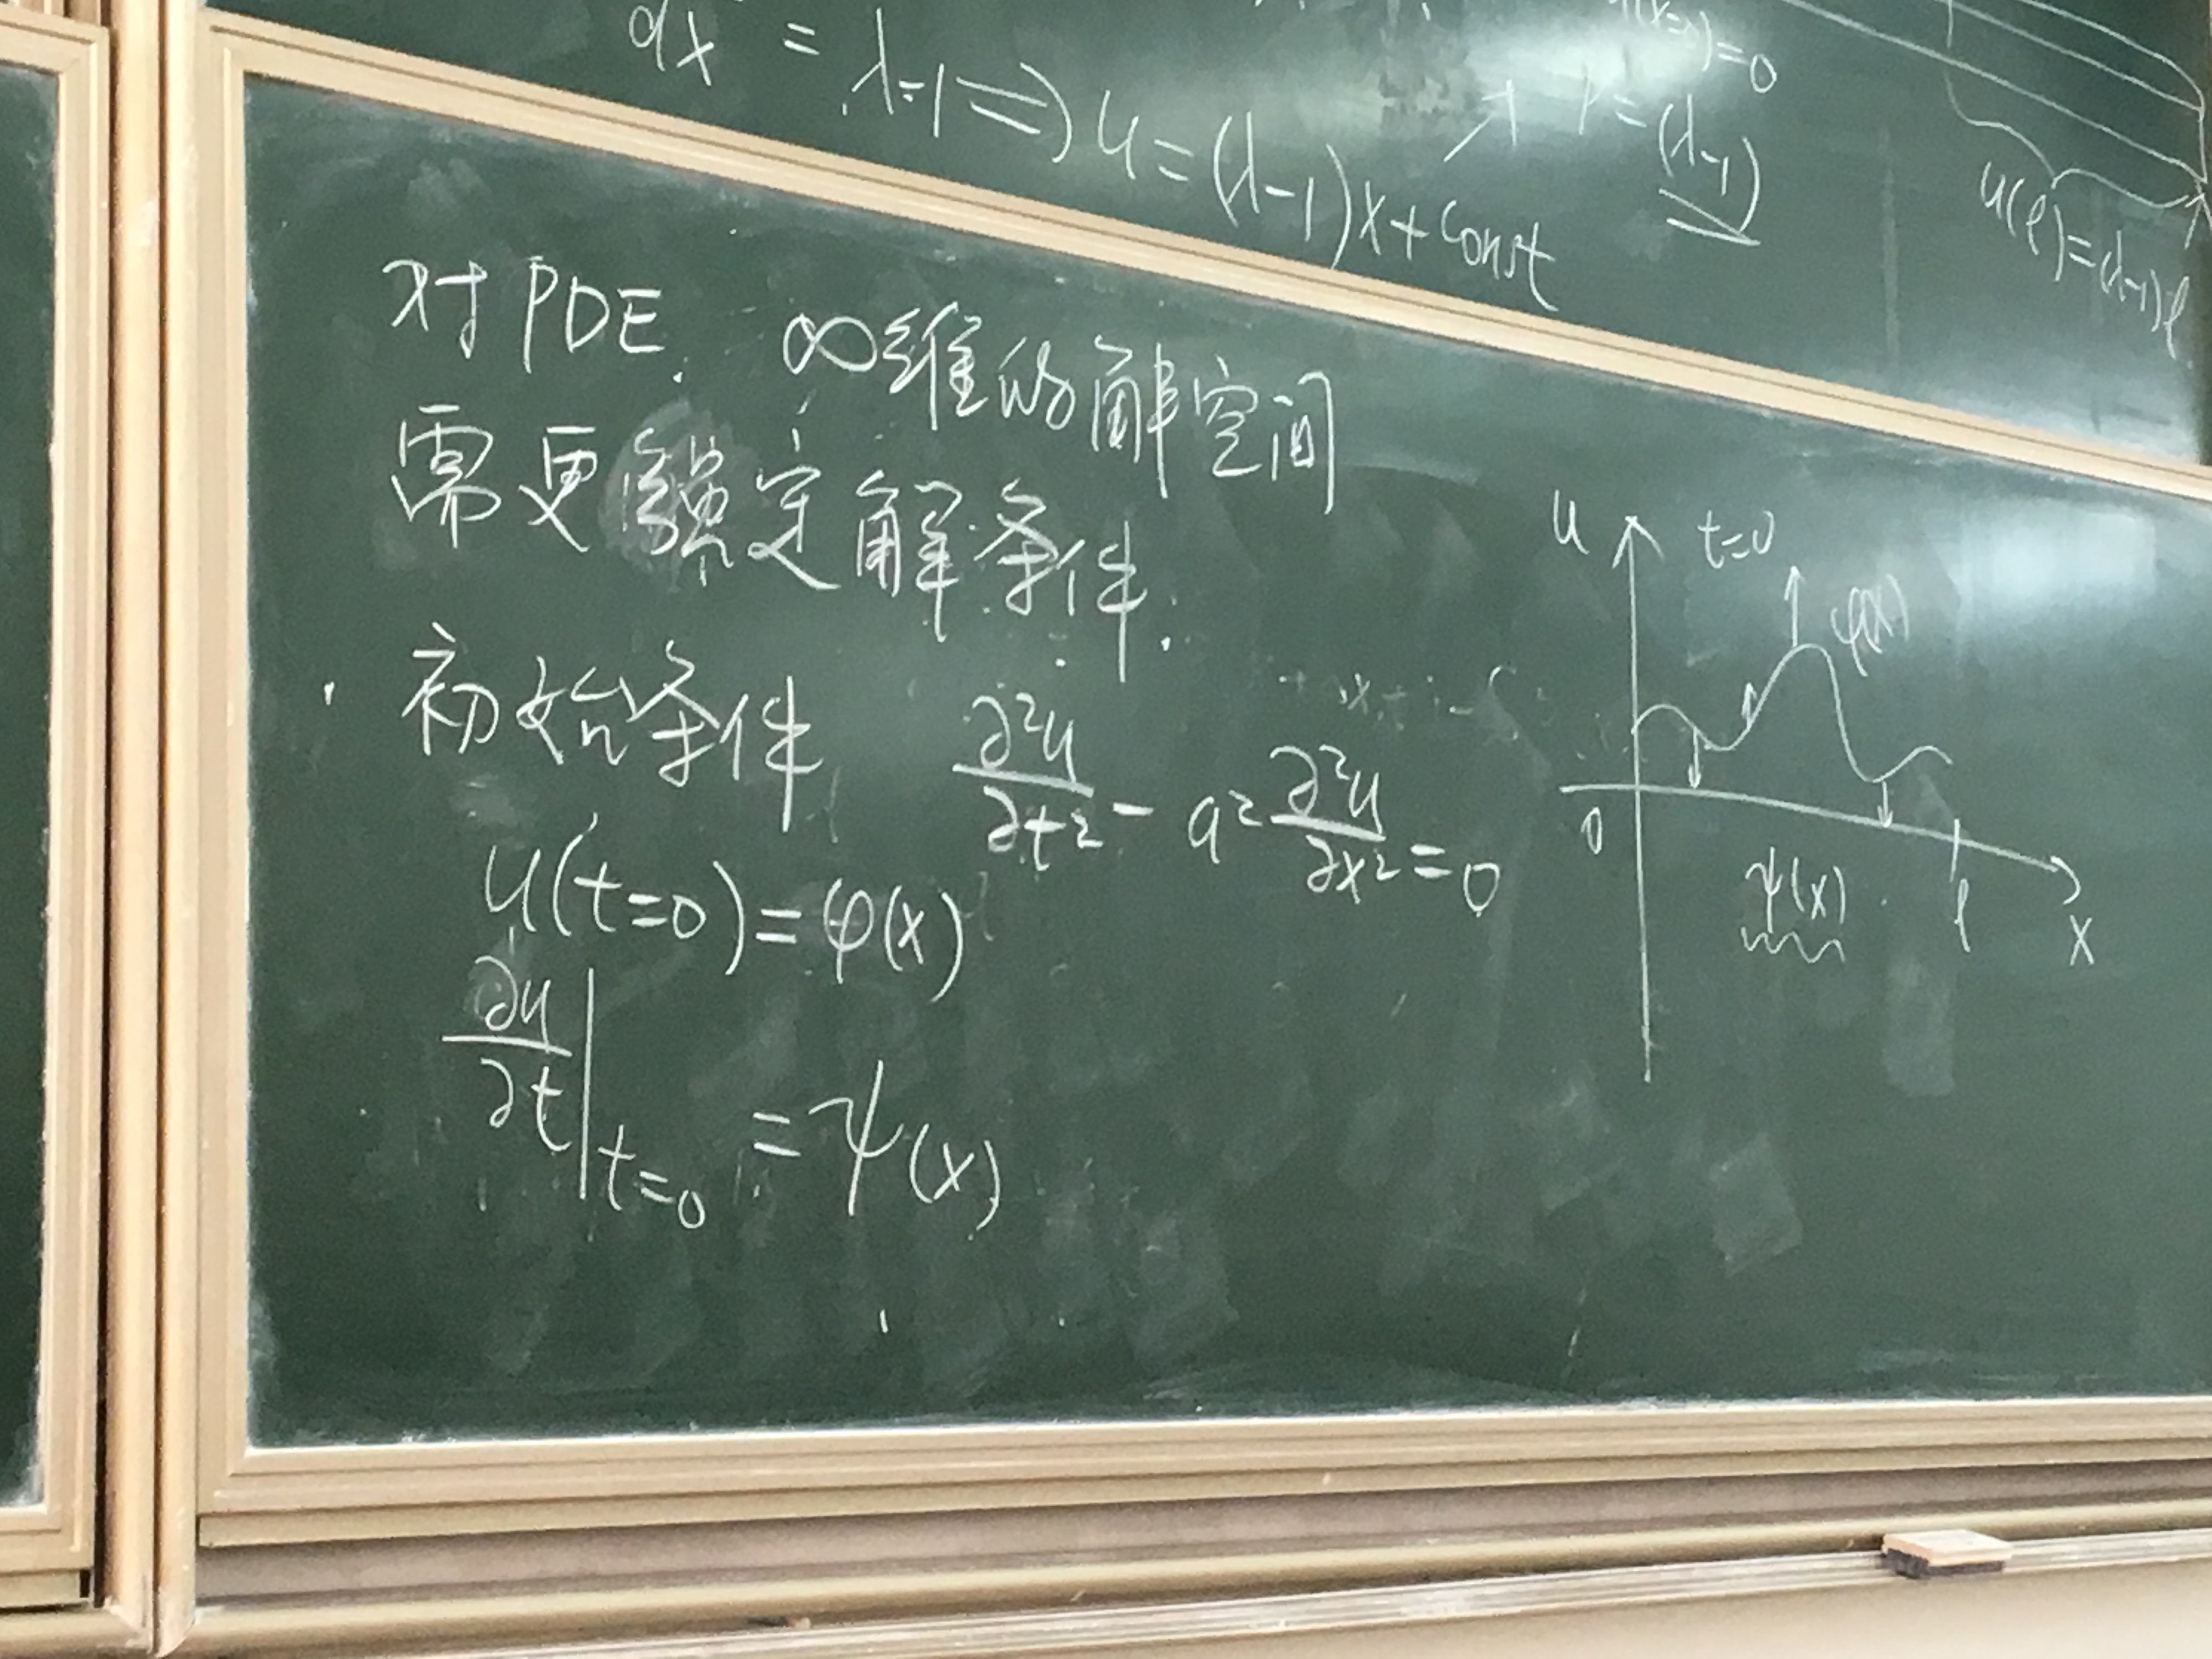 dx = λ-1 ⇒ u=(λ-1)x+const
=(λ-1)
u(l)=(λ-1)l
对PDE. ∞维的解空间
需更强定解条件.
· 初始条件 ∂²u/∂t² - a² ∂²u/∂x² = 0
u(t=0)=φ(x)
∂u/∂t|t=0 = ψ(x)
u t=0
φ(x)
0 ψ(x) l x